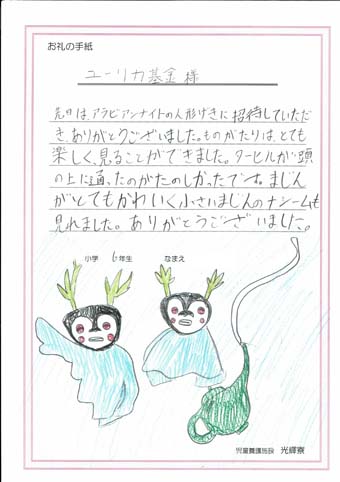 お礼の手紙
ユーリカ基金様
先日は、アラビアンナイトの人形げきに招待していただ
き、ありがとうございました。ものがたりは、とても
楽しく、見ることができました。ターヒルが頭
の上に通ったのがたのしかったです。まじん
がとてもかわいく小さいまじんのナシームも
見れました。ありがとうございました。
小学 6年生 なまえ
児童養護施設 光輝寮